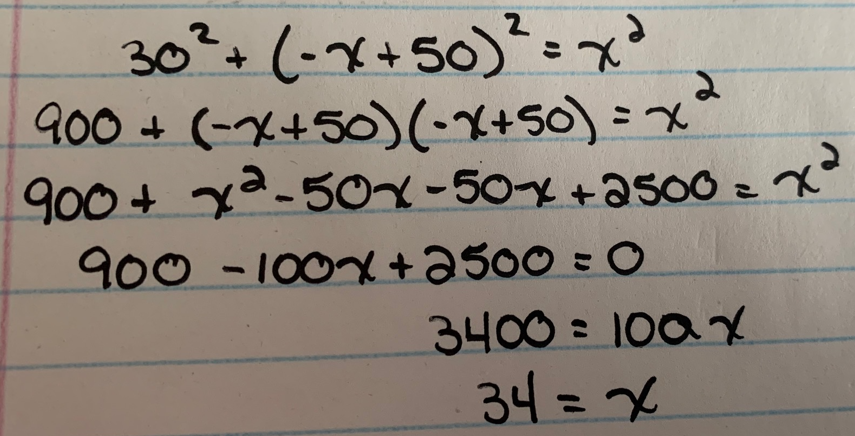 30² + (-x + 50)² = x²
900 + (-x+50)(-x+50) = x²
900 + x² - 50x - 50x + 2500 = x²
900 - 100x + 2500 = 0
3400 = 100x
34 = x